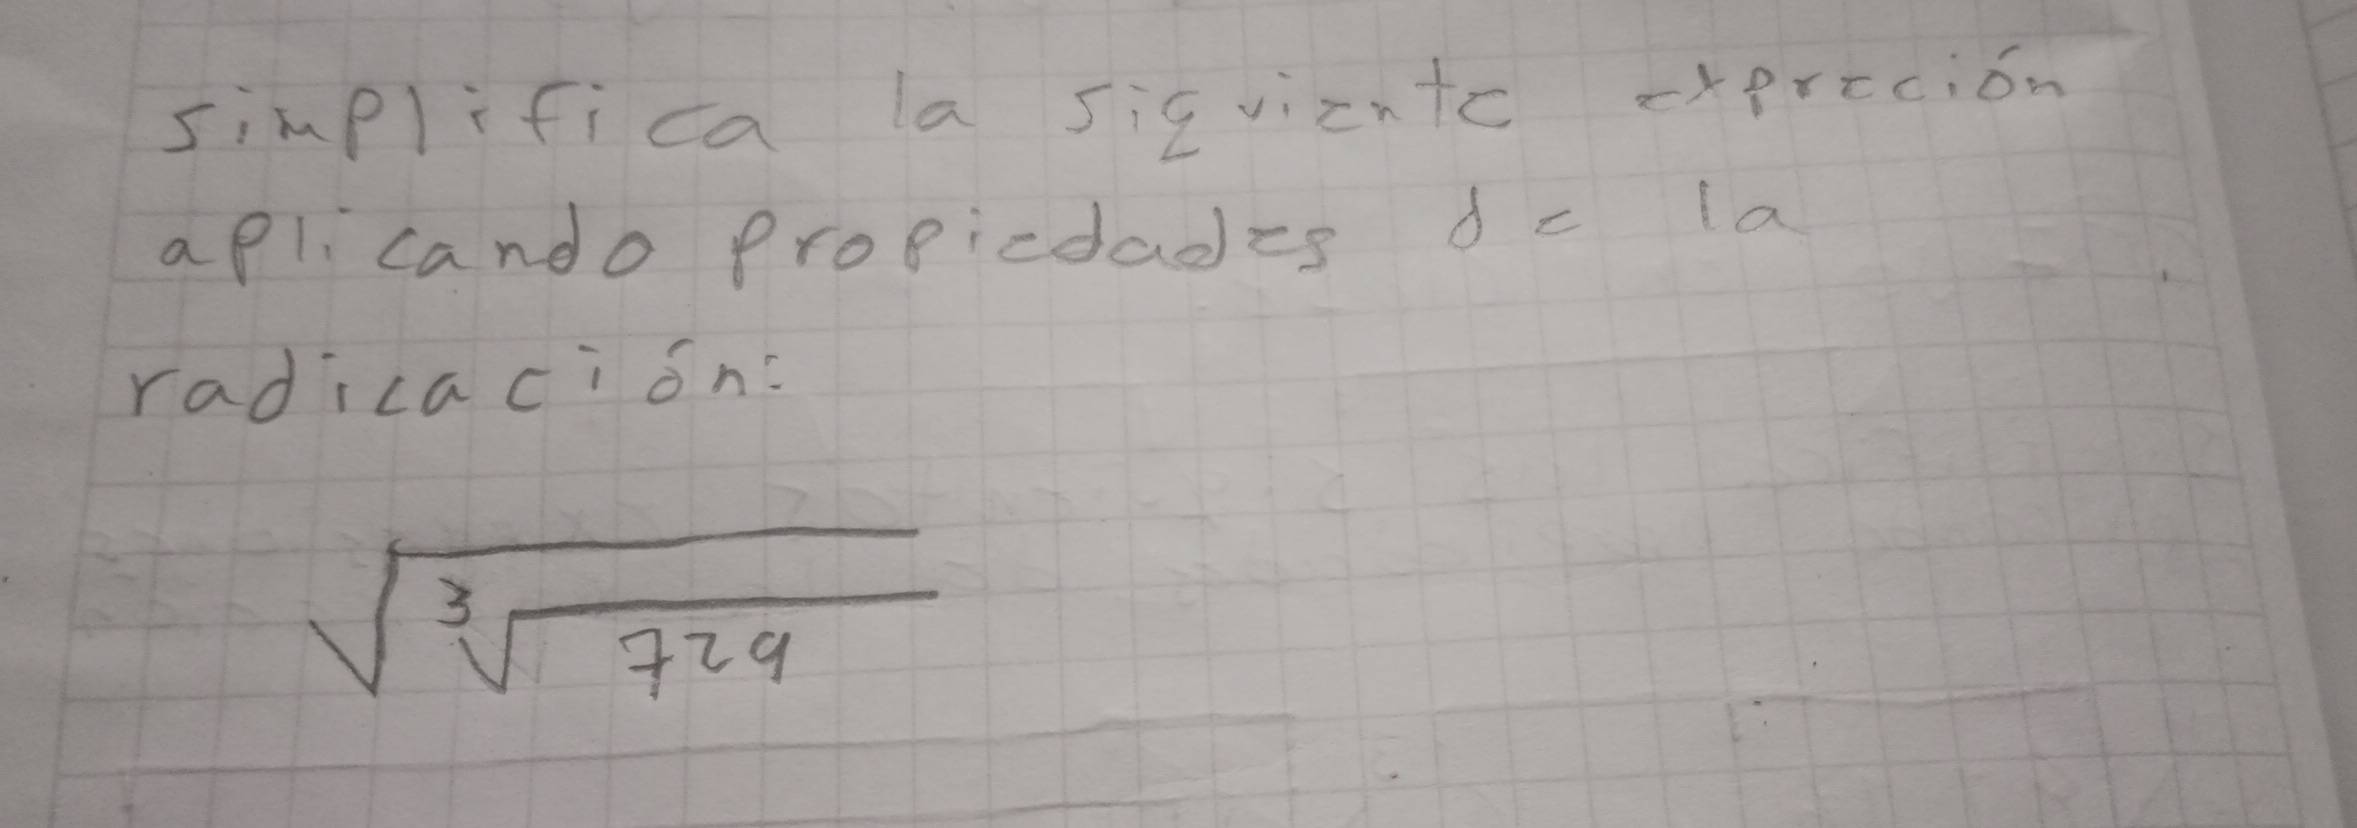 simplifica la siguiente expreción
aplicando propiedades de la
radicación:
√(∛729)